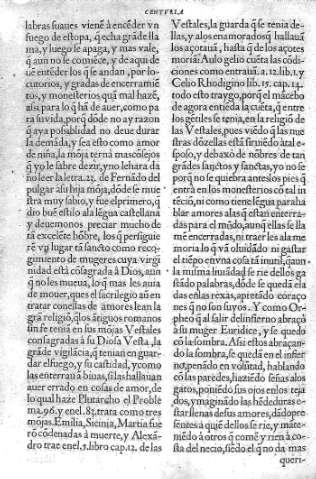 CENTVRIA
labras suaues vienē à encēder vn
fuego de estopa, q̃ echa grãde lla
ma, y luego se apaga, y mas vale,
q̃ aun no le comiēce, y de aqui de
uē entēder los q̃ se andan, por lo-
cutorios, y gradas de encerramiē
tos, y monesterios quã mal hazē,
assi para lo q̃ hã de auer, como pa
ra su vida, porq̃ dōde no ay razon
q̃ aya possiblidad no deue durar
la demãda, y sea esto como amor
de niña, la moja ternà mas cosejos
q̃ yo le sabre dezir, y no le hara da
ño leer la letra. 23. de Fernãdo del
pulgar à su hija mōja, dōde se mue
stra muy sabio, y fue el primero, q̃
dio buē estilo a la lēgua castellana
y deuemonos preciar mucho de
tã excelēte hōbre, los q̃ persiguiē
rē vn lugar tã sancto como reco-
gimiento de mugeres cuya virgi
nidad està cōsagrada à Dios, aun
q̃ no les mueua, lo q̃ mas les auia
de mouer, ques el sacrilegio auñ en
tratar conellas de amores lean la
grã religiō, q̃ los ãtiguos romanos
tuuierō en sus mojas Vestales
consagradas à su Diosa Vesta, la
grãde vigilãcia, q̃ tenian en guar-
dar el fuego, y su castidad, y como
las enterrauã à biuas, si las hallauan
auer errado en cosas de amor, de
lo qual haze Plutarcho el Proble
ma. 96. y enel. 83. trata como tres
mojas. Emilia, Sicinia, Martia fue
rō cōdenadas à muerte, y Alexã-
dro trae enel. 5. libro cap. 12. de las
Vestales, la guarda q̃ se tenia de-
llas, y a los enamorados q̃ hallauã
los açotauã, hasta q̃ de los açotes
moriã: Aulo gelio cuēta las cōdi-
ciones como entrauã. a. 12. lib. 1. y
Celio Rhodigino lib. 15. cap. 14.
todo esto traygo, porq̃ el mãcebo
de agora entiēda la cuēta, q̃ entre
los gētiles se tenia, en la religiō de
las Vestales, pues viēdo q̃ las nue
stras dōzellas està firmiēdo à tal e-
sposo, y debaxo de nōbres de tan
grãdes sanctos y sanctas, yo no se
porq̃ no se quiebra antes los pies q̃
entrã en los monesterios cō tal in
tēciō, ni como tiene lēgua para ha
blar amores a las q̃ estan encerra-
das para el mūdo, aunq̃ ellas se lla
mē encerradas, ni traer les a la me
moria lo q̃ và oluidado ni gastar
el tiēpo en vna cosa tã inutil, q̃ aun
la misma liuiãdad se rie dellos ga
stãdo palabras, dōde se quedã ela
das en las rexas, apretãdo coraço
nes q̃ no son suyos. Y como Or-
pheo q̃ al salir del infierno abraçò
à su muger Euridice, y se quedo
cō la sombra. Assi estos abraçan-
do la sombra, se quedã en el infier
no, penãdo en volũtad, hablando
cō las parēdes, haziēdo señas a los
gatos, poniēdo sus ojos en los teja
dos, ymaginãdo las hēdeduras e-
star llenas de sus amores, dãdo pre
sentes à quiē dellos se rie, y mate-
miēdo à otros q̃ comē y riēn à co-
sta del necio, siēdo el q̃ no da mas
queri-